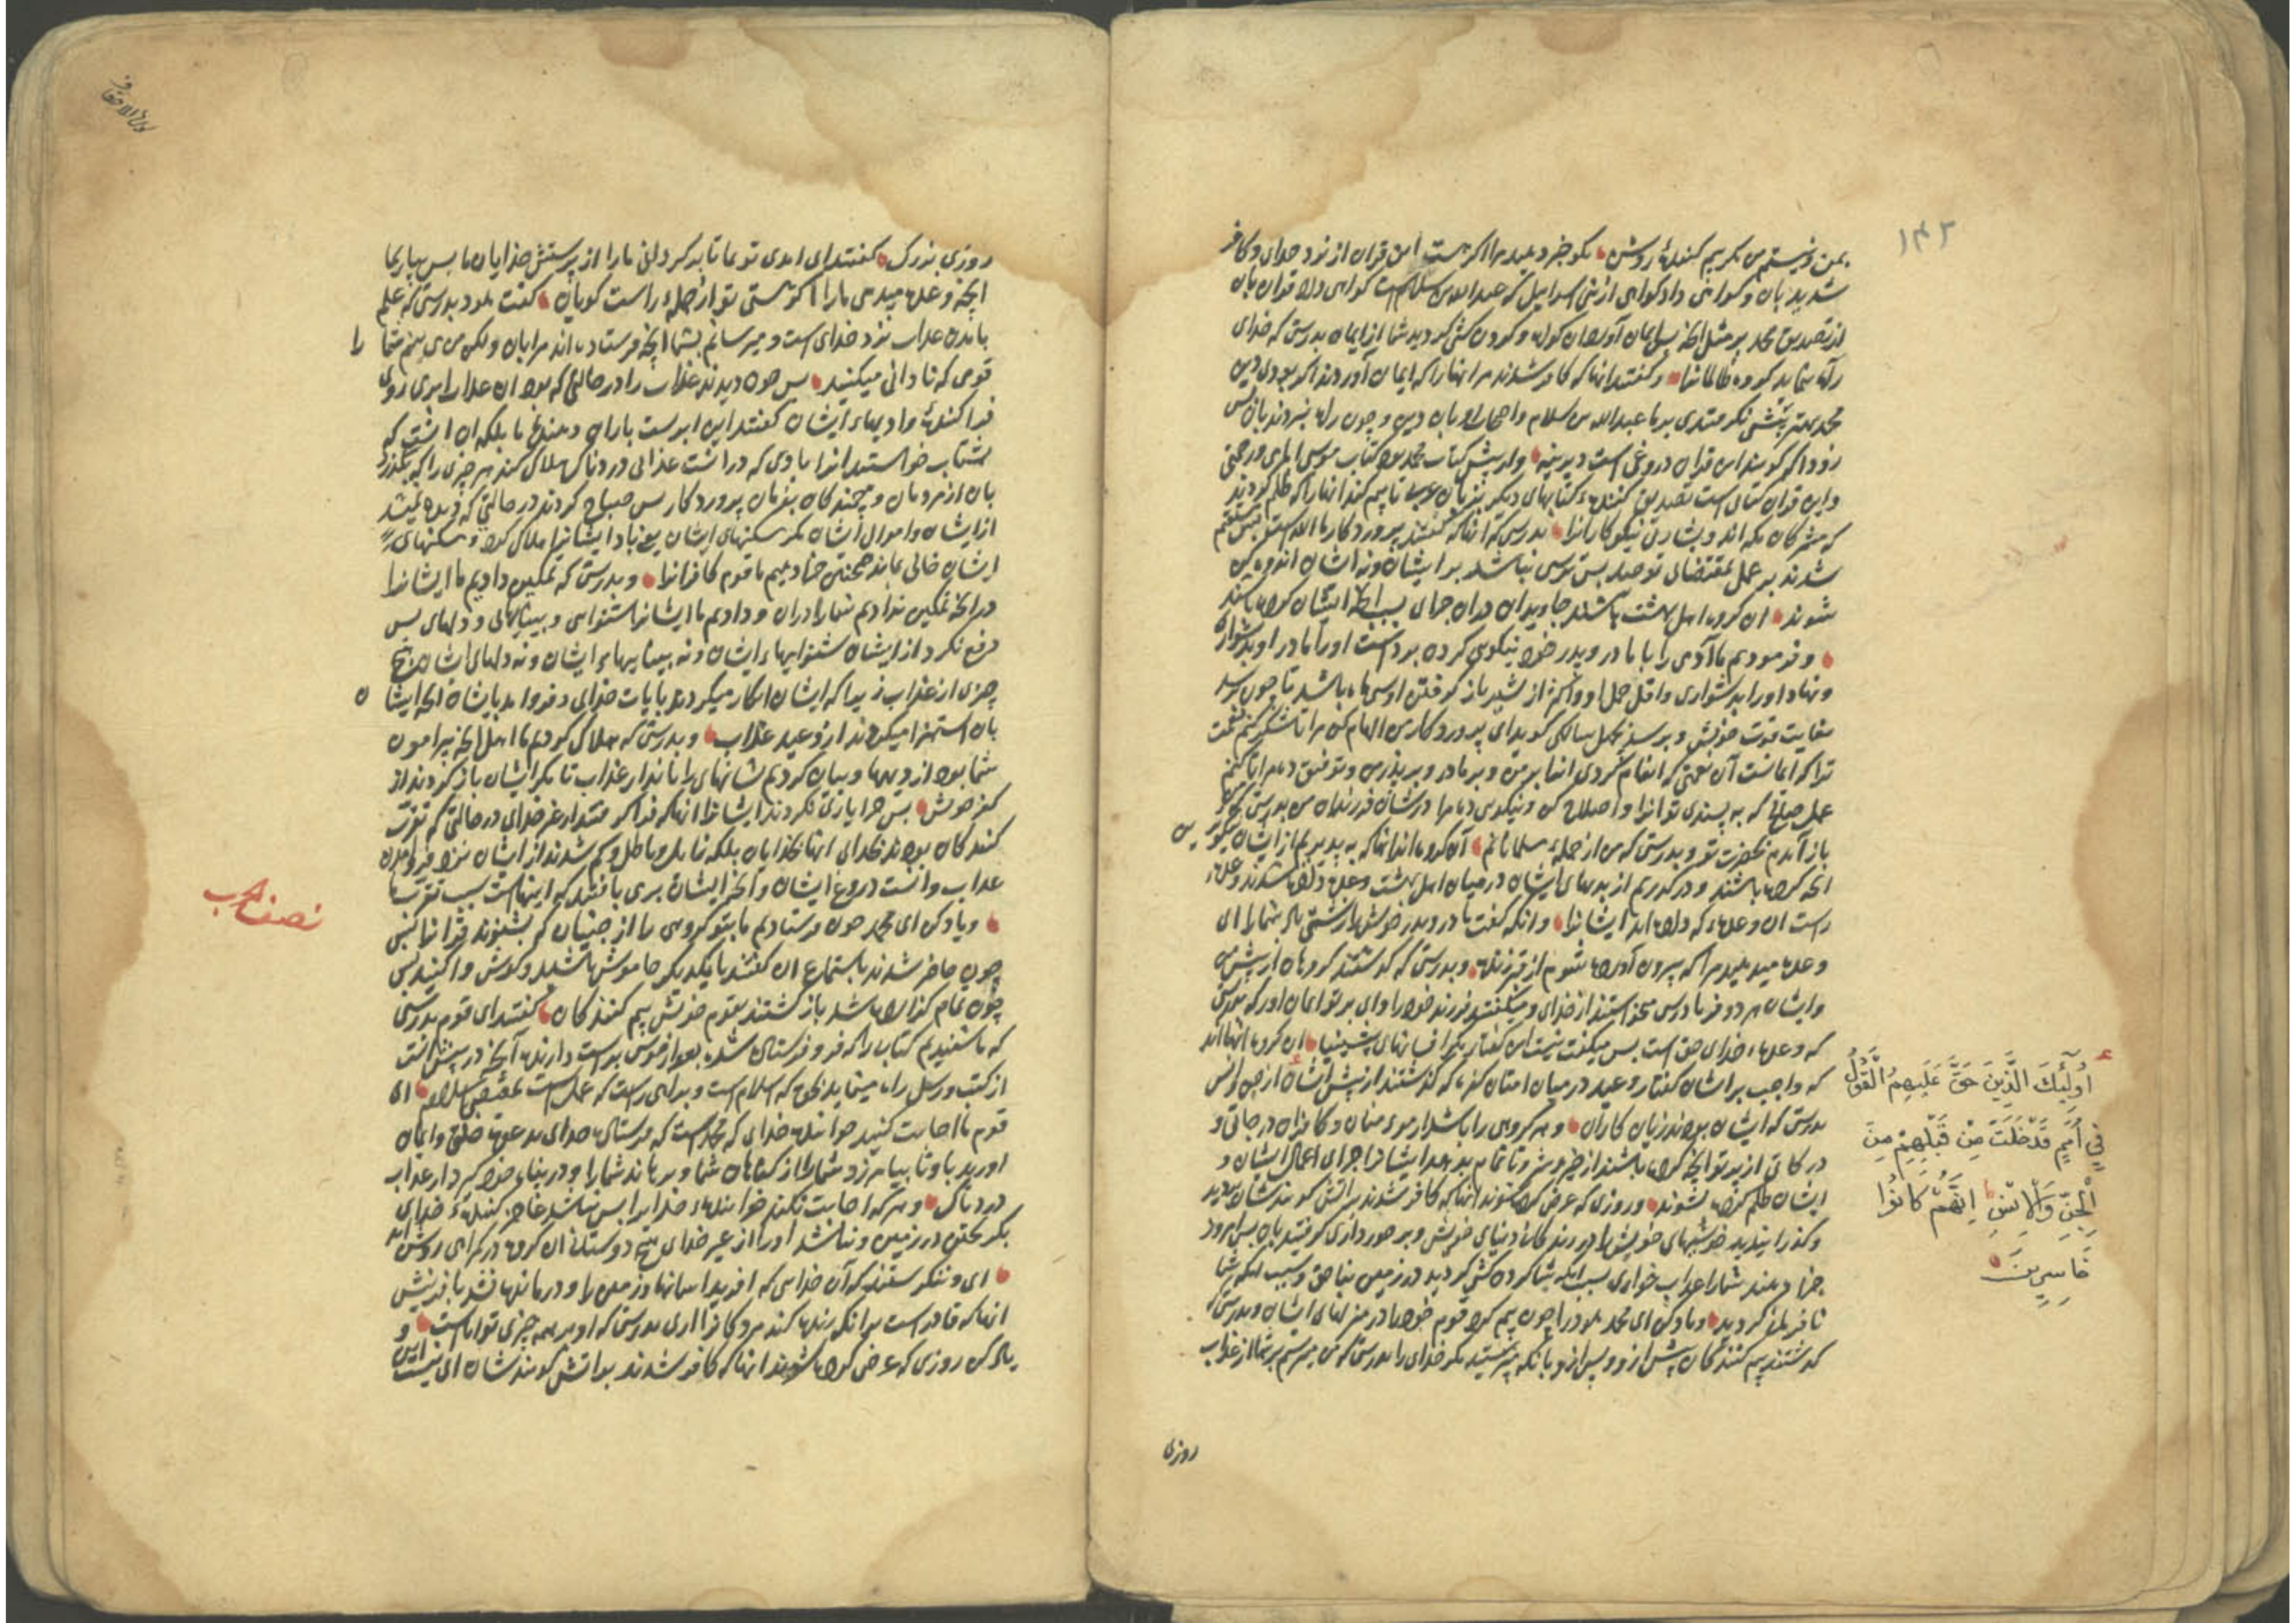 ۱۴۲
بمن و نیستم من مگر بیم کننده روشن بکو خبر دهید مرا اگر هست این قران از نزد خدای و کافر
شدید بان و کواهی داد کواهی از بنی اسرایل که عبدالله بن سلام است کواهی دادن قران بان
از تصدیق محمد بر مثل انکه پس ایمان آورد آن کواه و کردن کشی کردید شما از ایمان بدرستی که خدای
راه ننماید کروه ظالمانرا و کفتند انها که کافر شدند مر انها را که ایمان آوردند اکر بودی دین
محمد بهتر پیشی نکرفتندی بر ما عبدالله بن سلام و اصحاب او بان دین و چون راه نبردند بان پس
زود اکر کویند این قران دروغی است دیرینه و از پیش کتاب محمد بود کتاب موسی امام و رحمتی
و این قران کتابی است تصدیق کننده کتابهای دیکر بزبان عرب تا بیم کند انها را که ظلم کردند
که مشرکان مکه اند و بشارت نیکوکارانرا بدرستی که انها که کفتند پروردکار ما الله است پس مستقیم
شدند بر عمل بمقتضای توحید پس ترسی نباشد بر ایشان و نه ایشان اندوهکین
شوند ان کروه اهل بهشت باشند جاویدان در ان جزای بسبب انکه ایشان کرده باشند
و فرمودیم ما آدمی را با مادر و پدر خود نیکویی کرده بوداست اورا مادر او بدشواری
و نهاد اورا بدشواری و اقل حمل او و از شیر باز کرفتن او سی ماه باشد تا چون برسد
بغایت قوت خویش و برسد بچهل سالکی کوید ای پروردکار من الهام کن مرا تا شکر کنم نعمت
ترا که انعام کردی انرا بر من و بر مادر و پدر من و توفیق ده مرا تا کنم
عمل صالح که به پسندی تو انرا و اصلاح کن و نیکویی ده مرا در شان فرزندان من بدرستی که من
باز آمدم بحضرت تو و بدرستی که من از جمله مسلمانانم آن کروه اند انها که به پذیریم از ایشان نیکوتر
انچه کرده باشند و در کذریم از بدیهای ایشان در میان اهل بهشت وعده داده شدند وعده
راست ان وعده که داده اند ایشانرا و انکه کفت مادر و پدر خویش را زشتی باد شما را ای
وعده میدهید مرا که بیرون آورده شوم از قبر زنده و بدرستی که کذشتند کروهان از پیش من
و ایشان هر دو فریادرس میخواستند از خدای و میکفتند فرزند خود را وای بر تو ایمان اور که بدرستی
که وعده خدای حق است پس میکفت نیست این کفتار مکر افسانهای پیشینیان ان کروه انها اند
که واجب بر ایشان کفتار وعید در میان امتان کفره که کذشتند از پیش ایشان از جن و انس
بدرستی که ایشان بودند زیان کاران و هر کروهی را باشد از مومنان و کافران درجاتی و
درکاتی از انچه کرده باشند از خیر و شر و تا تمام بدهد ایشانرا جزای اعمال ایشان و
ایشان ظلم کرده نشوند و روزی که عرض کرده شوند انها که کافر شدند بر آتش کویند شان ببردید
و کذرانیدید خوشیهای خویش را در زندکانی دنیای خویش و برخورداری کرفتید بان پس امروز
جزا دهند شما را عذاب خواری بسبب انکه شما کردن کشی کردید در زمین بناحق و بسبب انکه شما
نافرمانی کردید و یاد کن ای محمد هود را چون بیم کرد قوم خود را در منزلهای ایشان و بدرستی که
کذشتند بیم کنندکان پیش از وی و پس از وی بانکه نپرستید مکر خدای را بدرستی که من میترسم بر شما از عذاب
أُولَٰئِكَ الَّذِينَ حَقَّ عَلَيْهِمُ الْقَوْلُ
فِي أُمَمٍ قَدْ خَلَتْ مِنْ قَبْلِهِمْ مِنَ
الْجِنِّ وَالْإِنْسِ إِنَّهُمْ كَانُوا
خَاسِرِينَ
روزی
روزی بزرک کفتند ای امدی تو بما تا بر کردانی ما را از پرستش خدایان ما پس بیار بما
انچه وعده میدهی ما را اکر هستی تو از جمله راست کویان کفت هود بدرستی که علم
بامدن عذاب نزد خدای است و میرسانم بشما انچه فرستاده اند مرا بان ولکن من می بینم شما را
قومی که نادانی میکنید پس چون دیدند عذاب را در حالتی که بود ان عذاب ابری روی
فرا کننده وادیهاء ایشان کفتند این ابر ست باران دهنده ما بلکه ان انست که
بشتاب خواستید انرا بادی که دراست عذابی دردناک هلاک کند هر چیزی را که بکذرد
بان از مردمان و جنبندکان بفرمان پروردکار پس صباح کردند در حالتی که دیده نمیشد
از ایشان و اموال ایشان مکر مسکنهای ایشان یعنی باد ایشانرا هلاک کرد و مسکنهای
ایشان خالی بماند همچنین جزا دهیم ما قوم کافرانرا و بدرستی که تمکین دادیم ما ایشانرا
در انچه تمکین ندادیم شما را دران و دادیم ما ایشانرا شنوایی و بینایهای و دلهای پس
دفع نکرد از ایشان شنواییهاء ایشان و نه بیناییهاء ایشان و نه دلهای ایشان هیچ
چیزی از عذاب زیرا که ایشان انکار میکردند بایات خدای و فرو امد بایشان انچه ایشان
بان استهزا میکردند از وعید عذاب و بدرستی که هلاک کردیم ما اهل انچه پیرامون
شما بود از دیهها و بیان کردیم نشانهای را تا مکر ایشان باز کردند از
کفر خویش پس چرا یاری نکردند ایشانرا انها که فرا کرفتند از غیر خدای در حالتی که تقرب
کنندکان بودند بخدای انها بخدایان بلکه ناپیدا و باطل و کم شدند از ایشان نزد فرود امدن
عذاب و انست دروغ ایشان و انچه ایشان بر می بافتند که اینهاست سبب تقرب ما
و یاد کن ای محمد چون فرستادیم ما بتو کروهی را از جنیان که بشنوند قرانرا پس
چون حاضر شدند باستماع ان کفتند با یکدیکر خاموش باشید و کوش وا کنید پس
چون تمام کذارده شد باز کشتند بقوم خویش بیم کنندکان کفتند ای قوم بدرستی
که ما شنیدیم کتابی را که فرو فرستاده شد بعد از موسی بوده است دارنده آنچه در پیش انست
از کتب و رسل راه مینماید بحق که اسلام است و براهی راست که عمل است بمقتضی اسلام ای
قوم ما اجابت کنید خواننده خدای که محمد است که فرستاده خدای بدعوت خلق و ایمان
اورید باو تا بیامرزد شما را از کناهان شما و برهاند شما را و در پناه خود کیرد از عذاب
دردناک و هر که اجابت نکند خواننده خدایرا پس نباشد عاجز کننده خدای
بکریختن در زمین و نباشد اورا از غیر خدای هیچ دوستان ان کروه در کمراهی روشن اند
ای و ننکرستند که آن خدایی که افرید اسمانها و زمین را و درمانده نشد بافرینش
انها که قادر است بر انکه زنده کند مردکانرا اری بدرستی که او بر همه چیزی تواناست و
یاد کن روزی که عرض کرده شوند انها که کافر شدند بر اتش کویند شان ای نیست این
نصف حزب